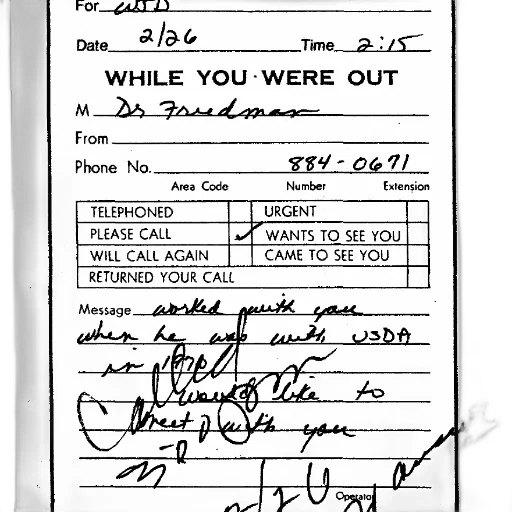 For
Date 2/26 Time 2:15
WHILE YOU WERE OUT
M Dr Friedman
From
Phone No. 884-0671
Area Code Number Extension
TELEPHONED URGENT
PLEASE CALL ✓ WANTS TO SEE YOU
WILL CALL AGAIN CAME TO SEE YOU
RETURNED YOUR CALL
Message worked with you
when he was with USDA
in 1970
would like to
meet with you
Operator